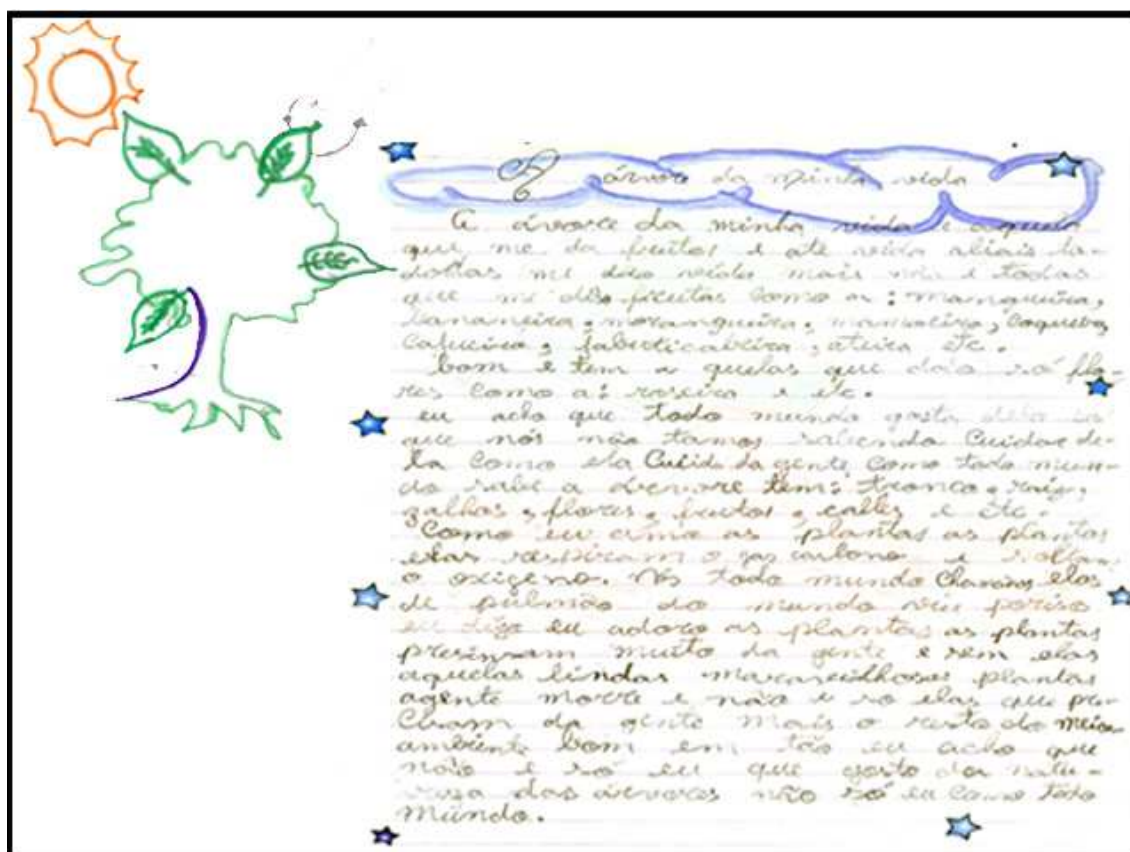 A árvore da minha vida
A árvore da minha vida é aquela
que me da frutos e até vida aliais to-
das me dão vida mais não é todas
que me dão frutas como a: mangueira,
bananeira, morangueira, mamoeiro, coqueiro,
cafueira, jaboticabeira, ateira etc.
bom e tem a quelas que dão só flo-
res como a: roseira e etc.
eu acho que todo mundo gosta dela só
que nós não tamos sabendo cuidar de-
la como ela cuida da gente como todo mun-
do sabe a árvore tem: tronco, raiz,
galhos, flores, frutos, calles e etc.
Como eu amo as plantas as plantas
elas respiram o gas carbono e soltam
o oxigeno. Nós todo mundo chamamos elas
de pulmão do mundo viu poriso
eu digo eu adoro as plantas as plantas
presinsam muito da gente e sem elas
aquelas lindas maravilhoses plantas
agente morre e não e so elas que pre-
cisam da gente mais o resto do meio
ambiente bom em tão eu acho que
não e só eu que gosto da natu-
reza das árvores não só eu como todo
mundo.